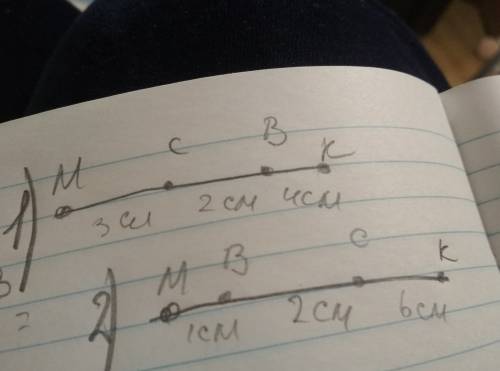 M C B K
1) 3 см 2 см 4 см
M B C K
2) 1 см 2 см 6 см
3
=